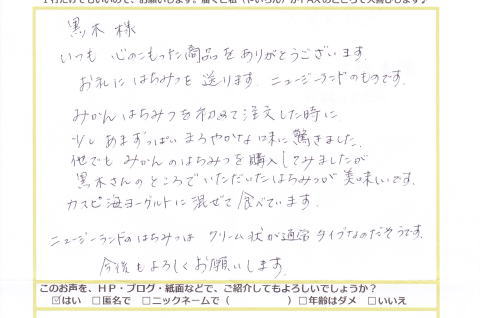 1行だけでもいいので、お願いします。届くと私（やいちん）がFAXのところで大喜びします♪
黒木 様
いつも 心のこもった商品をありがとうございます。
お礼にはちみつを 送ります。ニュージーランドのものです。
みかんはちみつを初めて注文した時に
少し あまずっぱい まろやかな味に驚きました。
他でも みかんのはちみつを購入してみましたが
黒木さんのところでいただいたはちみつが美味しいです。
カスピ海ヨーグルトに混ぜて食べています。
ニュージーランドのはちみつは クリーム状が通常タイプなのだそうです。
今後もよろしくお願いします。
このお声を、HP・ブログ・紙面などで、ご紹介してもよろしいでしょうか？
☑はい □匿名で □ニックネームで（ ） □年齢はダメ □いいえ